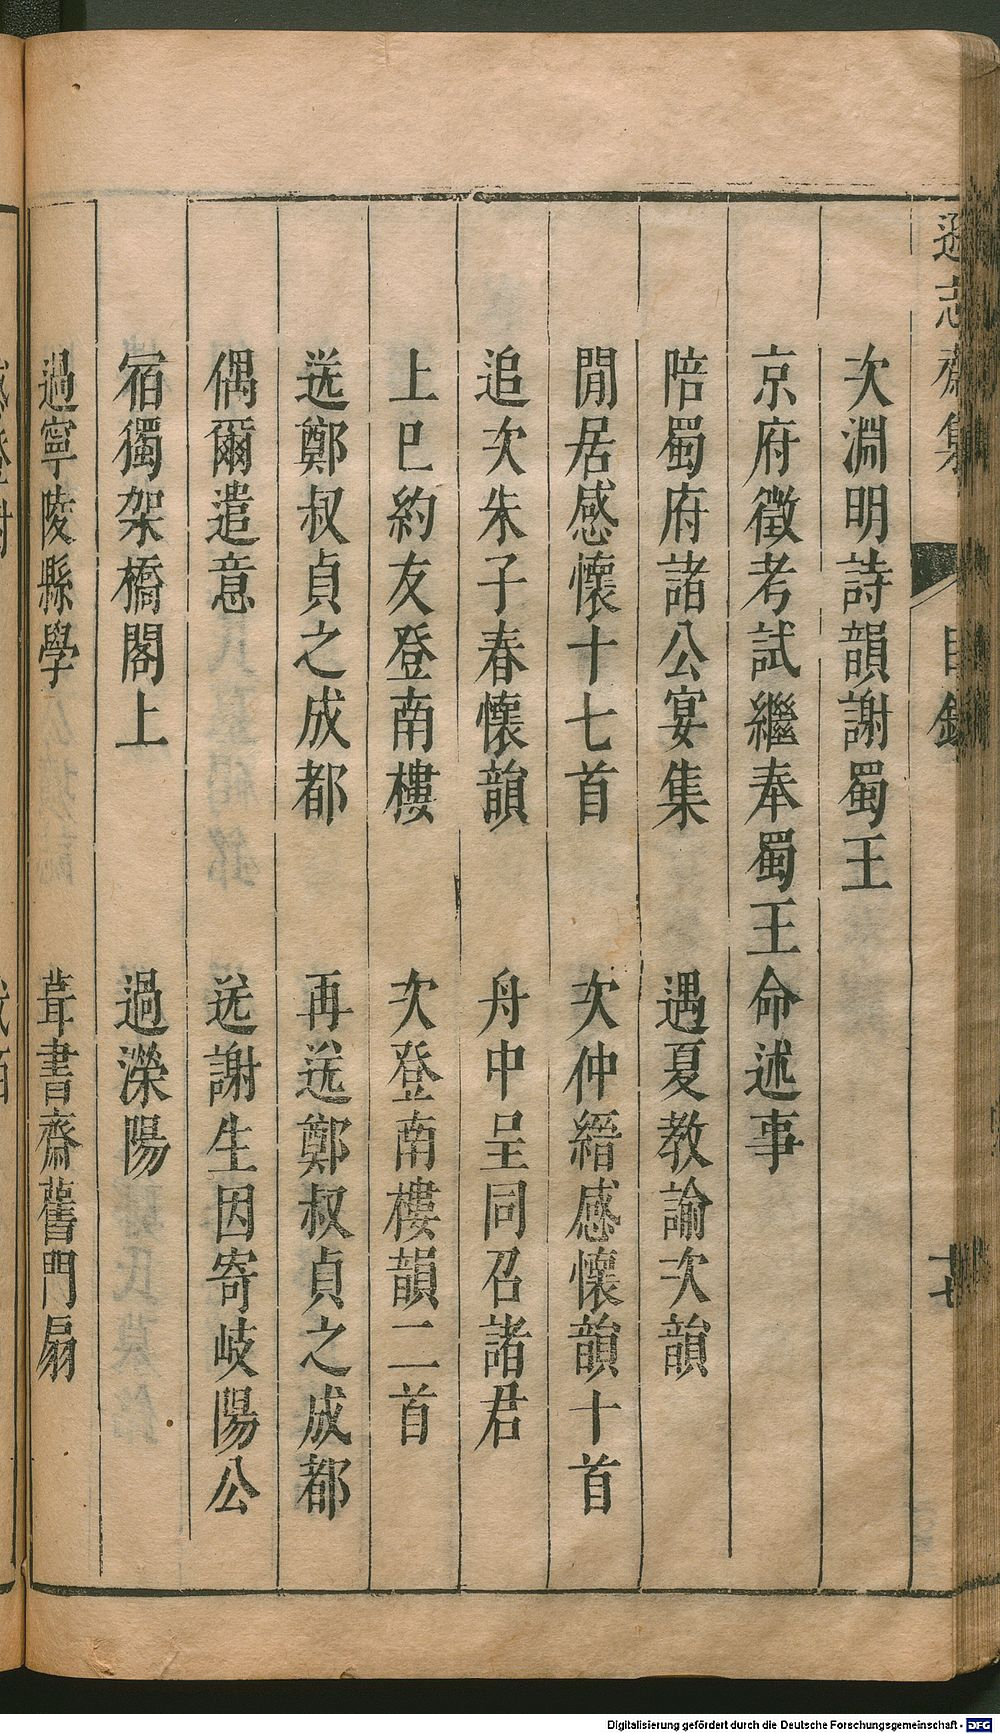 遜志齋集 目錄 十七
次淵明詩韻謝蜀王
京府徵考試繼奉蜀王命述事
陪蜀府諸公宴集 遇夏教諭次韻
閒居感懷十七首 次仲縉感懷韻十首
追次朱子春懷韻 舟中呈同召諸君
上巳約友登南樓 次登南樓韻二首
送鄭叔貞之成都 再送鄭叔貞之成都
偶爾遣意 送謝生因寄岐陽公
宿獨架橋閣上 過濼陽
過寧陵縣學 葺書齋舊門扇
Digitalisierung gefördert durch die Deutsche Forschungsgemeinschaft - DFG